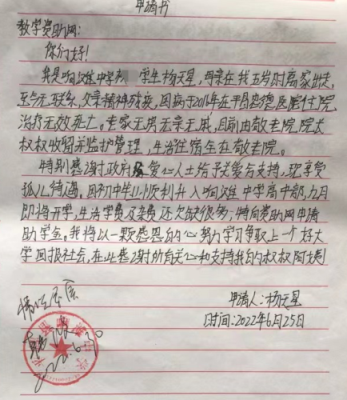 申请书
教学资助网:
你们好!
我是响滩中学 学生杨天星,母亲在我五岁时离家出走,
至今无联系,父亲精神残疾,因病于2018年在平昌
治疗无效死亡。 家无男无亲无戚,目前由敬老院院长
权权收留并监护管理,生活住宿全在敬老院。
特别感谢政府 爱心人士给予关爱与支持,现享受
孤儿待遇。因初中毕业顺利升入响滩中学高中部,九月
即将开学,生活学费及杂费还欠缺很多;特向资助网申请
助学金。我将以一颗感恩的心努力学习争取上一个好大
学回报社会,在此感谢帮助关心和支持我的权权阿姨
申请人:杨天星
时间:2022年6月25日
2022.6.